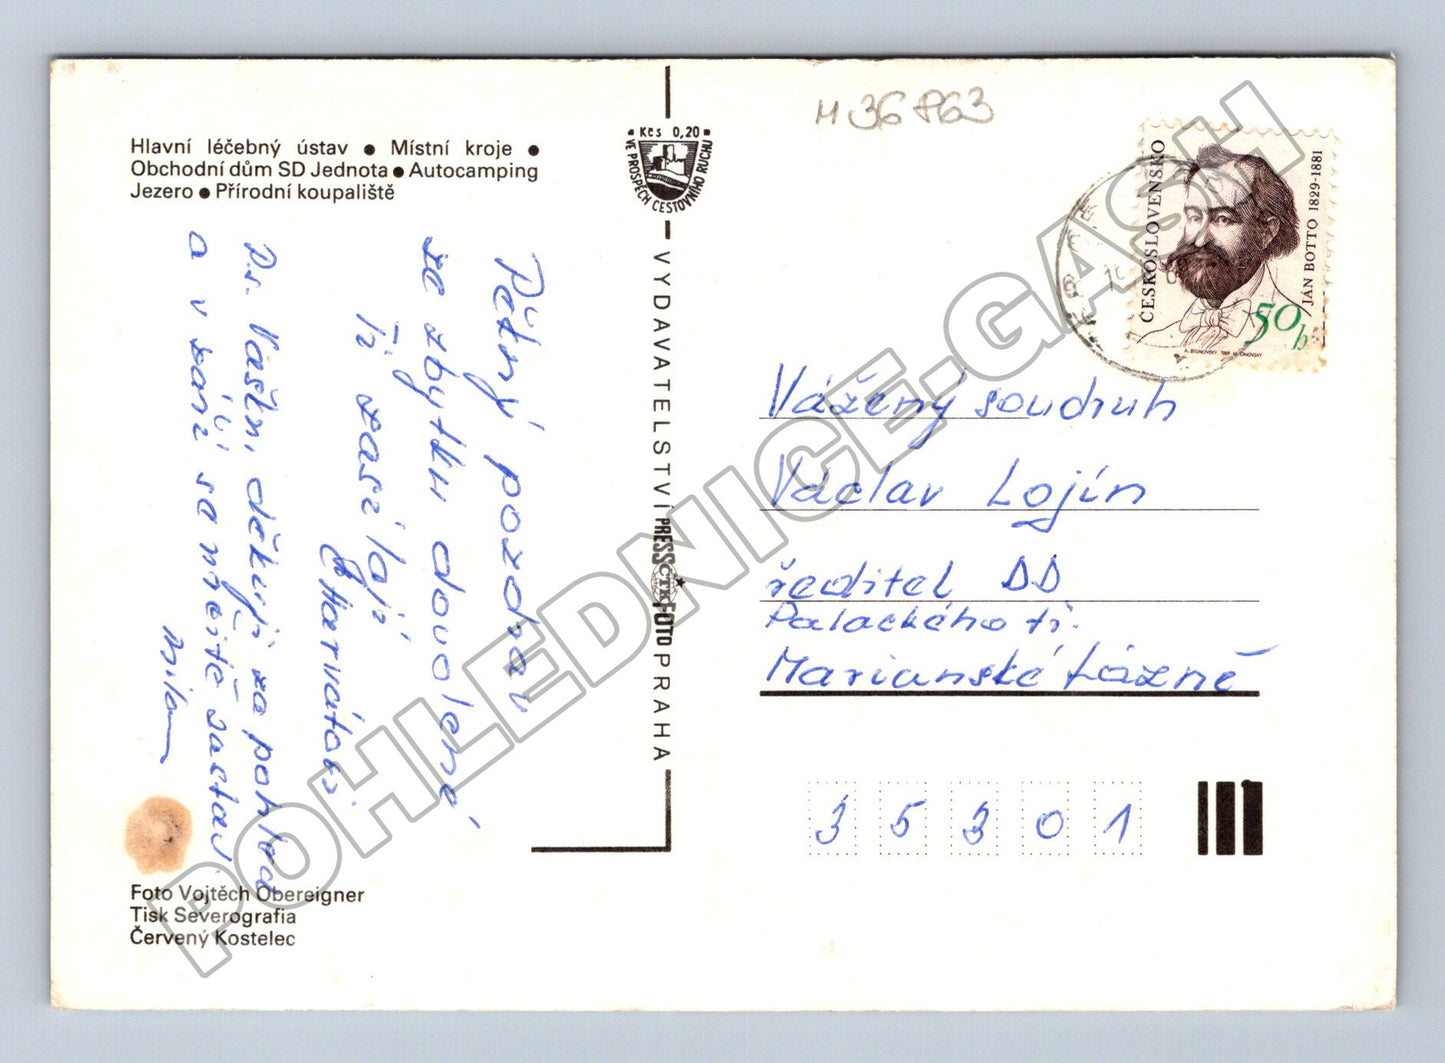 M 36 863
Hlavní léčebný ústav ● Místní kroje ●
Obchodní dům SD Jednota ● Autocamping
Jezero ● Přírodní koupaliště
Kčs 0,20
VE PROSPĚCH CESTOVNÍHO RUCHU
VYDAVATELSTVÍ PRESSFOTO PRAHA
ČTK
ČESKOSLOVENSKO
JÁN BOTTO 1829-1881
50 h
Pěkný pozdrav
ze zbytku dovolené
Ti zasílají
Charvátovi
P.s. Vašku, děkuji za pohled
a v září se měítě
Milan
Vážený soudruh
Václav Lojín
ředitel DD
Palackého tř.
Marianské Lázně
35301
Foto Vojtěch Obereigner
Tisk Severografia
Červený Kostelec
POHLEDNICE-GASH